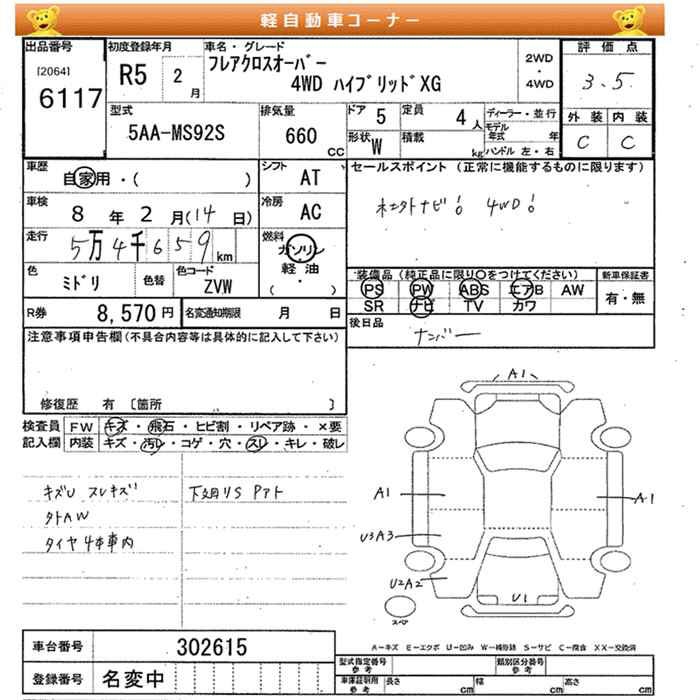 軽自動車コーナー
出品番号
[2064]
6117
初度登録年月
R5 2 月
車名・グレード
フレアクロスオーバー
4WD ハイブリッドXG
2WD
・
4WD
評価点
3.5
外装 内装
C C
型式
5AA-MS92S
排気量
660 CC
ドア 5
定員 4 人
形状 W
積載 kg
ディーラー・並行
モデル年式 年
ハンドル 左・右
車歴
自家用・( )
シフト
AT
車検
8 年 2 月(14 日)
冷房
AC
走行
5万4千659 km
燃料
ガソリン
軽油
・
( )
色
ミドリ
色替
色コード
ZVW
R券 8,570 円
名変通知期限 月 日
セールスポイント (正常に機能するものに限ります)
4WD!
装備品 (純正品に限り○をつけてください)
PS PW ABS エアB AW
SR ナビ TV カワ
新車保証書
有・無
後日品
ナンバー
注意事項申告欄 (不具合内容等は具体的に記入して下さい)
修復歴 有 [箇所 ]
検査員
記入欄
FW キズ・飛石・ヒビ割・リペア跡・×要
内装 キズ・汚レ・コゲ・穴・スレ・キレ・破レ
キズU スレキズ
タイヤ4本車内
A1
A1
A1
U3A3
U2A2
U1
スペア
A=キズ E=エクボ U=凹み W=補修跡 S=サビ C=腐食 XX=交換済
車台番号 302615
登録番号 名変中
型式指定番号
参考
類別区分番号
参考
車庫証明用
参考
長さ cm
幅 cm
高さ cm